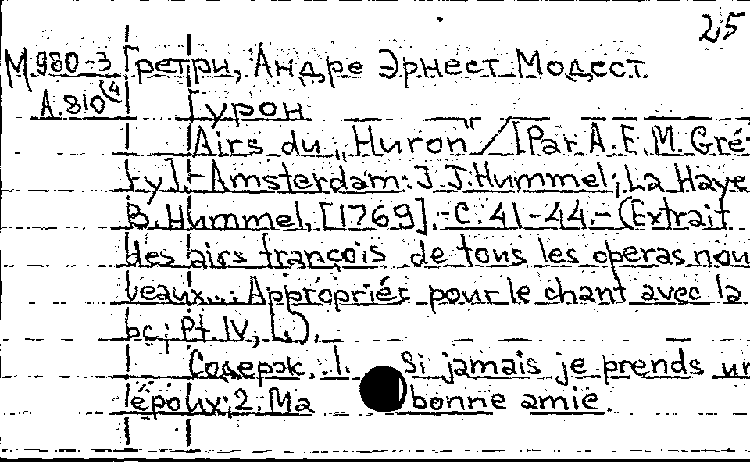 25
М 980-3 Гретри, Андре Эрнест Модест
А.810(4
Гурон
Airs du „Huron" / [Par A. E. M. Gré-
try]. - Amsterdam: J. J. Hummel; La Haye
B. Hummel, [1769]. - С. 41-44. - (Extrait
des airs françois de tous les operas nou
veaux...: Appropriés pour le chant avec la
bc; Pt. IV, 1.).
Содерж.: 1. Si jamais je prends un
époux; 2. Ma bonne amie.